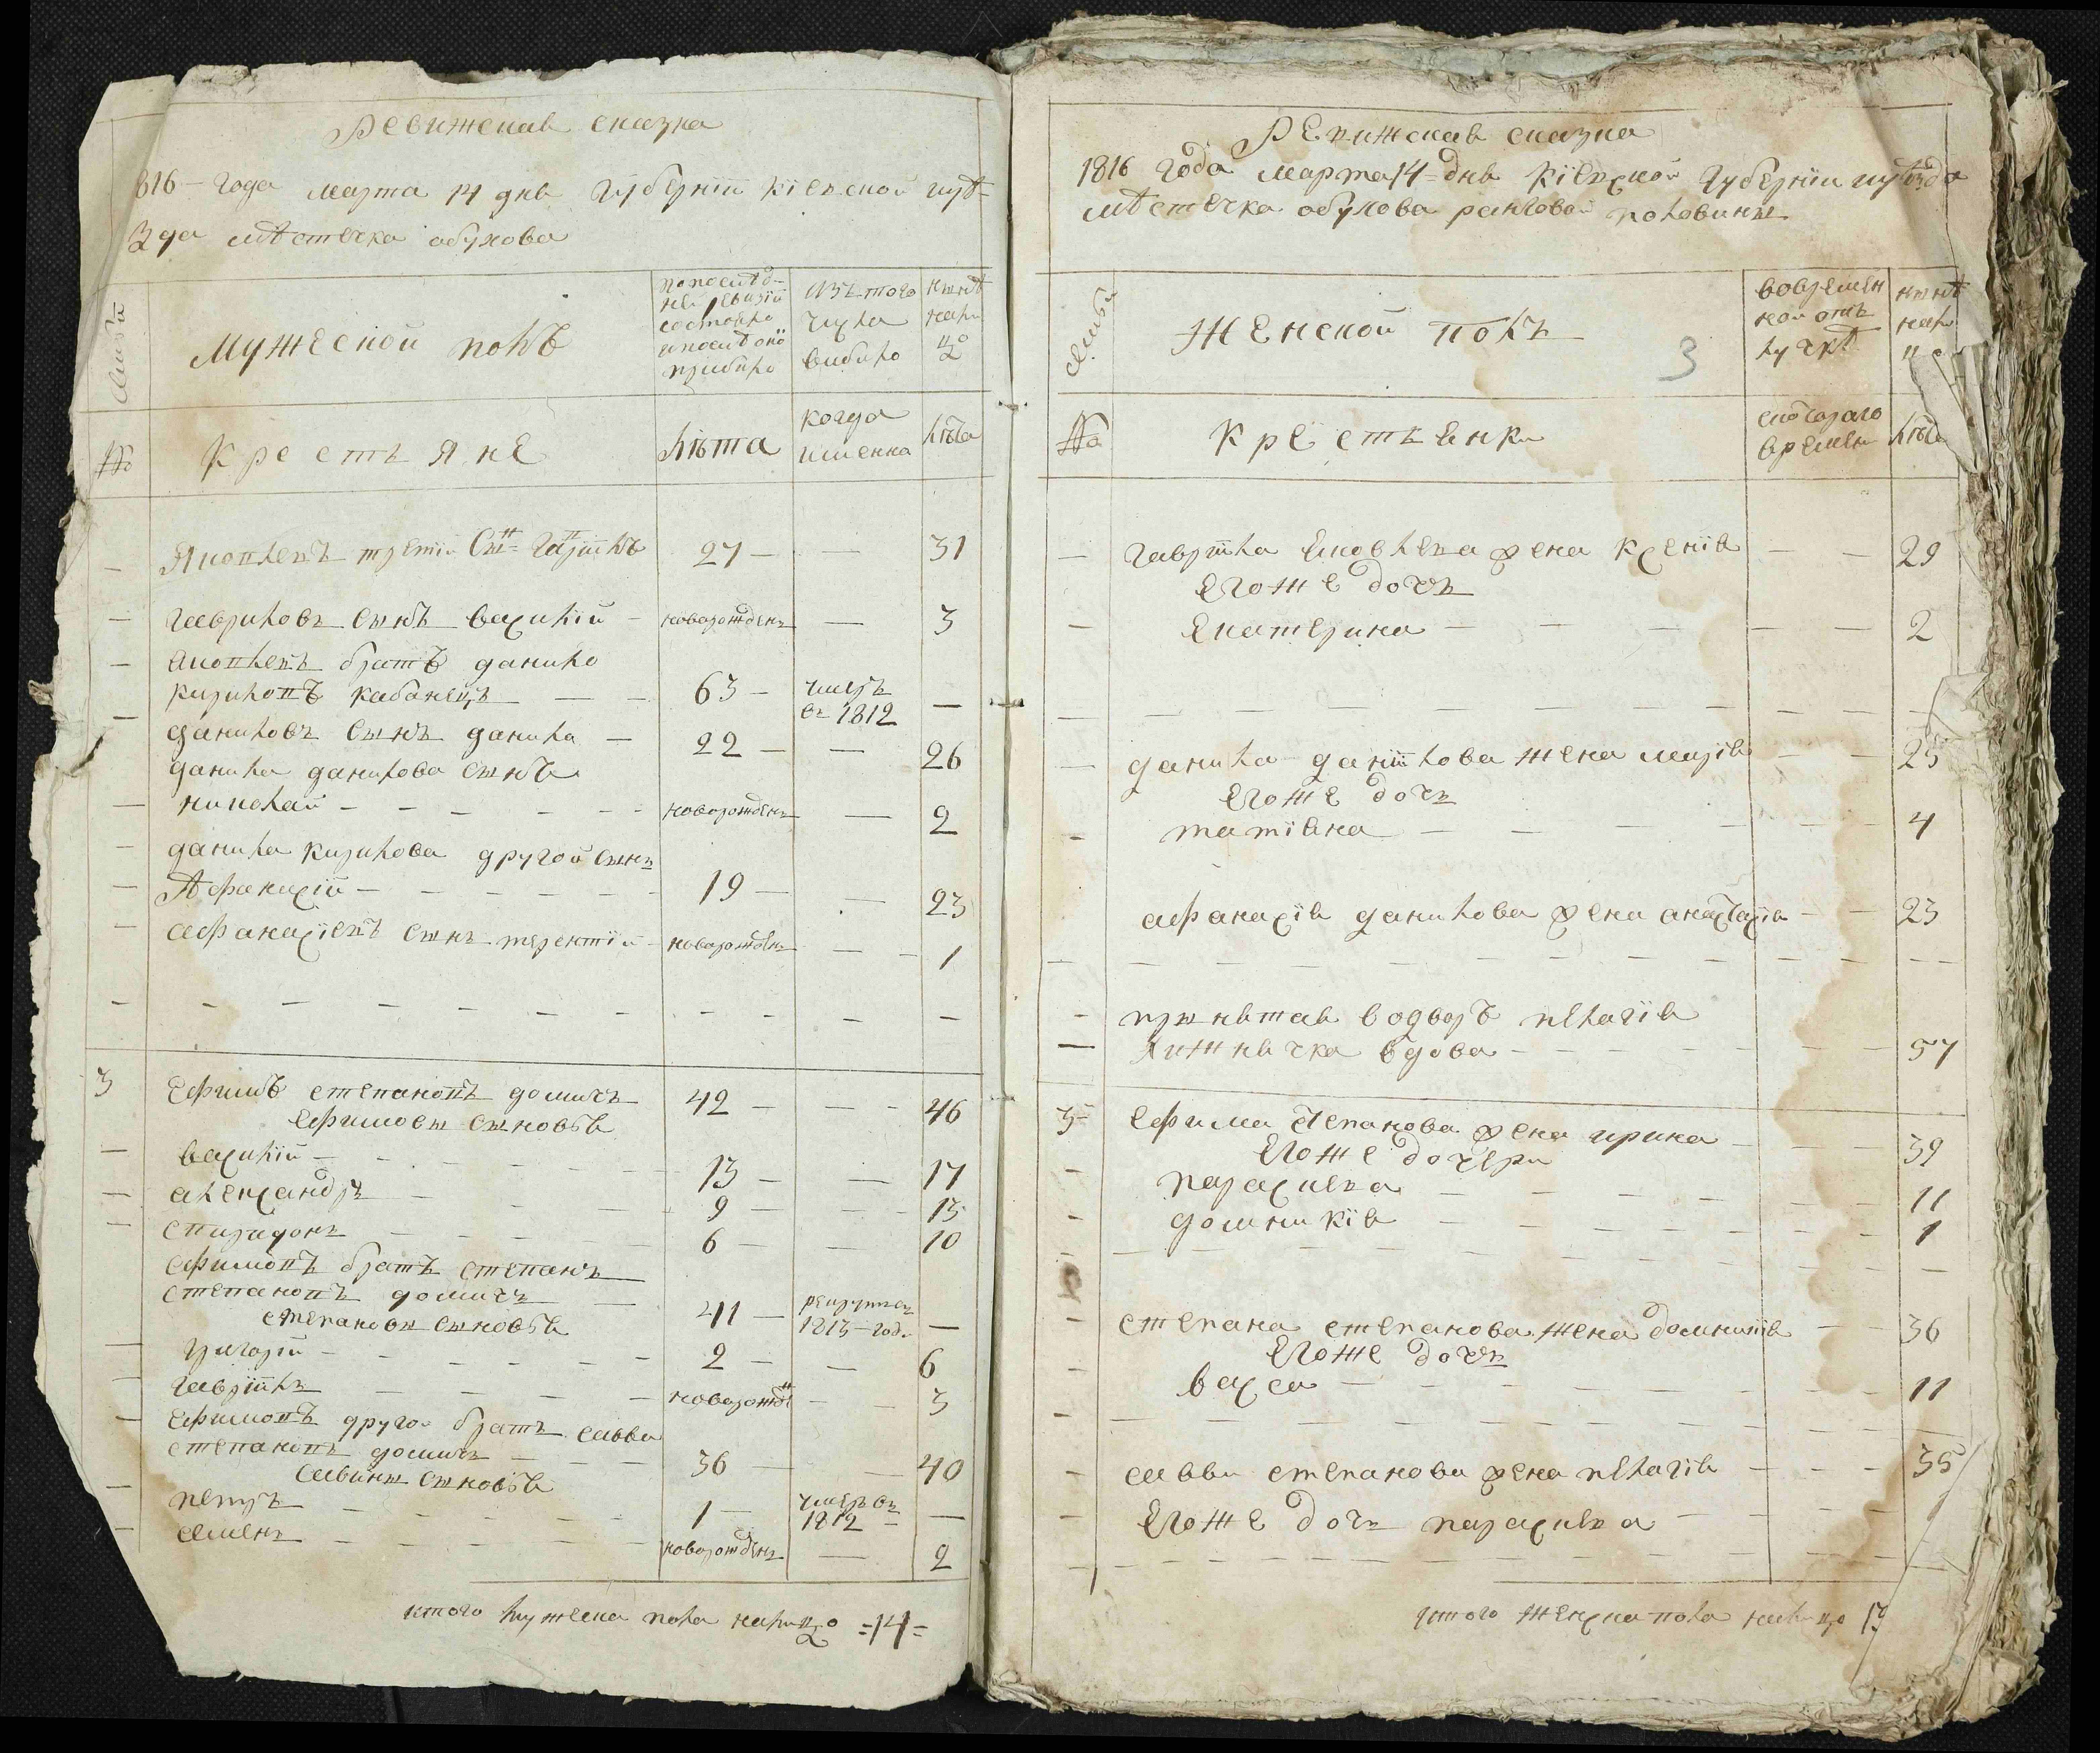 Ревижская сказка
816 – года марта 14 дня губернїи кїевской иуѣ-
зда мѣстечка обухова
семьи
Мужеской полъ
попослѣд-
ней ревизїи
состояло
ипослѣ оно
прибыло
изъ того
числа
выбыло
нынѣ
нали
цо
№
Крестьяне
лѣта
когда
именно
лѣта
Яковлевъ третїй Снъ Гаврїилъ 27 — — 31
гавриловъ сынъ василїй – новорожденъ — 3
яковлевъ братъ данило
кириловъ кабанецъ — — 63 – умеръ въ 1812 —
даниловъ сынъ данила — 22 — — 26
данила данилова сынъ
николай – – – – – новорожденъ — 2
данила кирилова другой сынъ
Афанасїй – – – – – 19 — — 23
афанасїевъ сынъ терентїй – новорожденъ — – 1
3 Ефимъ степановъ домичъ 42 — — – 46
Ефимовы сыновья
василїй – – – – – 13 – — 17
александръ – 9 — – 13
спиридонъ – – – – 6 — — 10
ефимовъ братъ степанъ
степановъ домичъ — 41 — рекрутъ въ 1813 – годъ —
степановы сыновья
григорїй – – – – – 2 – — 6
гаврїилъ – – – – новорожде – – 3
Ефимовъ другой братъ савва
степановъ домичъ – – – 36 — — 40
савины сыновья
петръ – – – – – 1 — умеръ въ 1812 —
семенъ – – – – – новорожденъ — 2
итого мужеска пола налицо =14=
Ревижская сказка
1816 года марта 14 = дня Кїевской губернїи иуѣзда
мѣстечка обухова ранговой половины
семьи
Женской полъ
3
вовремен
ной отъ
лучкѣ
нынѣ
нали
№
Крестьянки
скотораго
времени
лѣта
гаврїила Яковлева жена Ксенїя — — 29
Егоже дочь
Екатерина – – – – – 2
данила – данїилова жена марїя — – 25
Егоже дочь
татїяна — – – – – 4
афанасїя данилова жена анастасїя – – 23
принятая водворъ пелагїя
Лижнячка вдова – – – – – 57
3 Ефима Степанова жена ирина – – 39
Егоже дочери
параскева – – – – 11
домникїя – – – – 1
степана степанова жена домникїя — – 36
Егоже дочь
васса – – – – – 11
саввы степанова жена пелагїя – – – 35
Егоже дочь параскева – – – 1
итого женска пола налицо 13